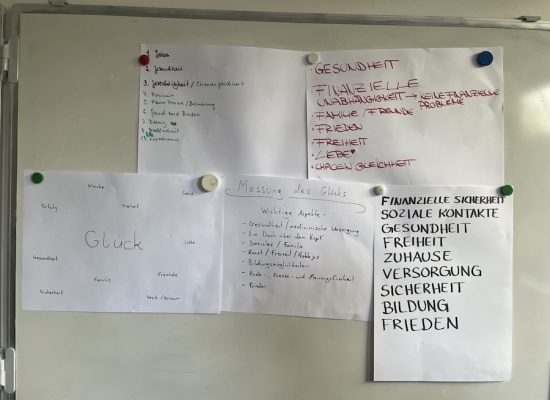 2. Gesundheit
3. Gerechtigkeit / Chancengleichheit
4. Freiheit
7. Bildung
· GESUNDHEIT
· FINANZIELLE
UNABHÄNGIGKEIT → KEINE FINANZIELLE
PROBLEME
· FAMILIE / FREUNDE
· FRIEDEN
· FREIHEIT
· LIEBE
· CHACEN GLEICHHEIT
Glaube
Geld
Erfolg
Freiheit
Glück
Liebe
Gesundheit
Familie
Freunde
Sicherheit
Messung des Glücks
Wichtige Aspekte:
- Gesundheit / medizinische Versorgung
- Ein Dach über dem Kopf
- Soziales / Familie
- Kunst / Freizeit / Hobbys
- Bildungsmöglichkeiten
- Rede-, Presse- und Meinungsfreiheit
- Frieden
FINANZIELLE SICHERHEIT
SOZIALE KONTAKTE
GESUNDHEIT
FREIHEIT
ZUHAUSE
VERSORGUNG
SICHERHEIT
BILDUNG
FRIEDEN